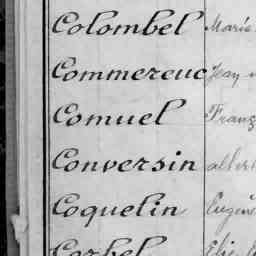 Colombel Marie
Commereuc Jean
Comuel Franç
Conversin albert
Coquelin Eugèn
Corbel Elie